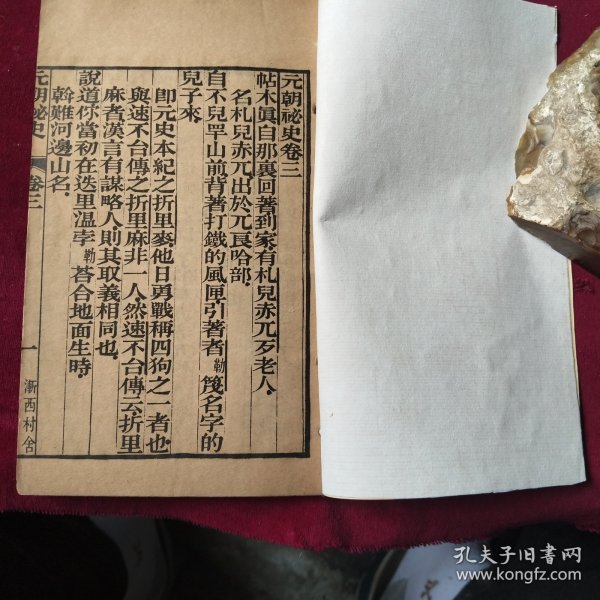 元朝祕史卷三
帖木真自那裏回著到家有札兒赤兀歹老人
名札兒赤兀出於兀良哈部
自不兒罕山前背著打鐵的風匣引著者勒篾名字的
兒子來
卽元史本紀之折里麥他日勇戰稱四狗之一者也
與速不台傳之折里麻非一人然速不台傳云折里
麻者漢言有謀略人則其取義相同也
說道你當初在迭里溫孛勒荅合地面生時
斡難河邊山名
元朝祕史
卷三
一
漸西村舍
孔夫子旧书网
www.kongfz.com